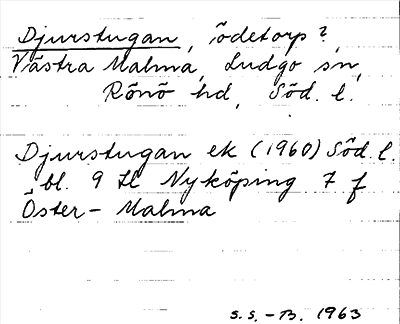 Djurstugan, ödetorp?,
Västra Malma, Ludgo sn,
Rönö hd, Söd. l.
Djurstugan ek (1960) Söd. l.
bl. 9 H Nyköping 7 f
Öster-Malma
S.S.-B. 1963